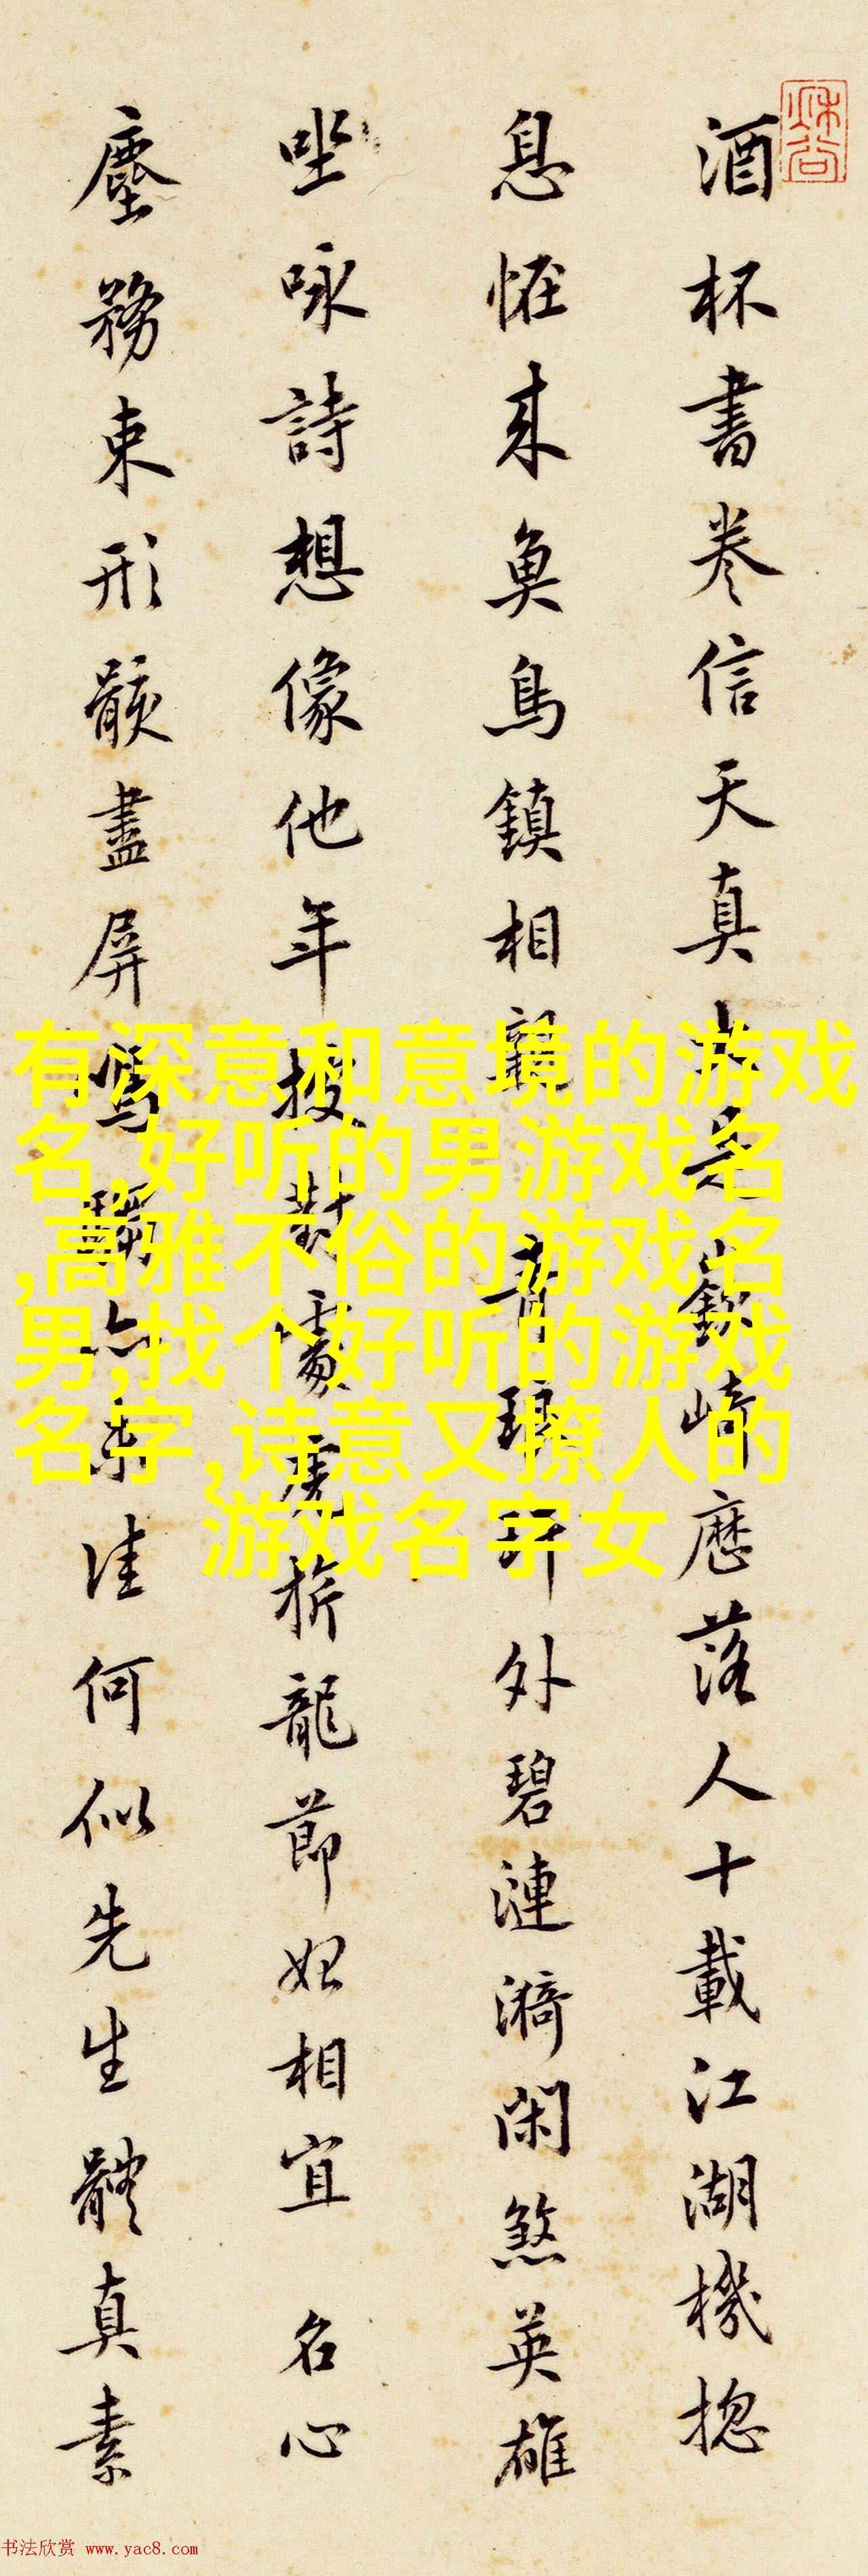 酒杯書卷信天真是嶔崎歷落人十載江湖機揔
息怪来魚鳥鎮相親 青琅玕外碧漣漪閑煞英雄
坐咏詩想像他年對處虎旂龍節相宜 名心
塵務束形骸盡屏亦佳何似先生體真素
有深意和意境的游戏
名,好听的男游戏名
,高雅不俗的游戏名
男,找个好听的游戏
名字,诗意又撩人的
游戏名字女
书法欣赏 www.yac8.com